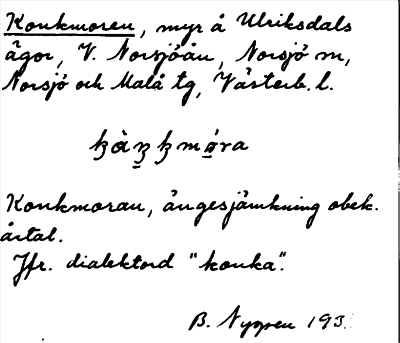 Konkmoren, myr å Ulriksdals
ägor, V. Norsjöån, Norsjö sn,
Norsjö och Malå tg, Västerb. l.
Konkmoran, ängesjämkning obek.
årtal.
Jfr. dialektord "konka".
B. Nygren 193